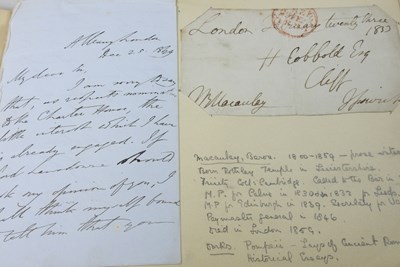 Albany London
Dec 20 1849
My dear Sir,
I am very sorry
that, as respects nominations
to the Charter House, the
little interest which I have
is already engaged. If
should
ask my opinion of you, I
shall think myself bound
to tell him that you
London twenty three
1833
H Cobbold Esq
Cliff
Ipswich
TBMacaulay
Macaulay, Baron. 1800-1859 - prose writer
Born Rothley Temple in Leicestershire.
Trinity Coll: Cambridge. Called to the Bar in
M.P. for Calne in 1830 1833 for Leeds
M.P. for Edinburgh in 1839. Secretary for War
Paymaster General in 1846
Died in London 1859.
Works. Pompeii - Lays of Ancient Rome
Historical Essays.